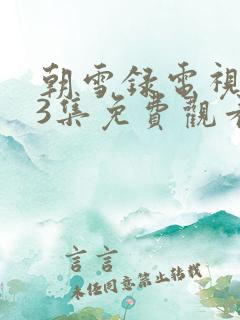 朝雪錄電視
3集免費觀看
言言
未經同意禁止轉載